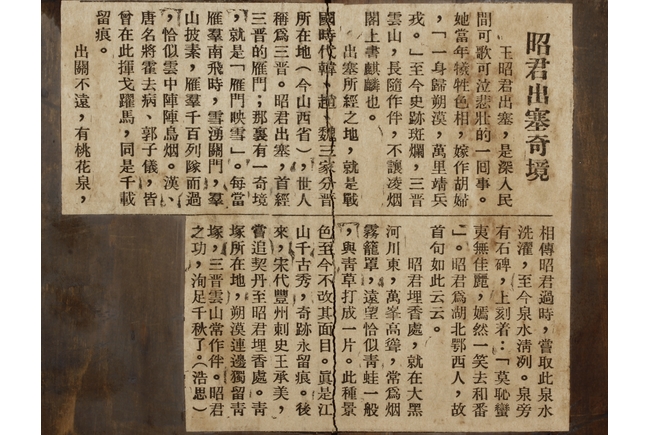 昭君出塞奇境
王昭君出塞，是深入民
間可歌可泣悲壯的一囘事。
她當年犧牲色相，嫁作胡婦
，「一身歸朔漠，萬里靖兵
戎。」至今史跡斑斕，三晋
雲山，長隨作伴，不讓凌烟
閣上書麒麟也。
出塞所經之地，就是戰
國時代韓、趙、魏三家分晋
所在地（今山西省），世人
稱爲三晋。昭君出塞，首經
三晋的雁門；那裏有一奇境
，就是「雁門映雪」。每當
雁羣南飛時，雪湧關門，羣
山披素，雁羣千百列隊而過
，恰似雲中陣陣鳥烟。漢、
唐名將霍去病、郭子儀，皆
曾在此揮戈躍馬，同是千載
留痕。
出關不遠，有桃花泉，
相傳昭君過時，嘗取此泉水
洗濯，至今泉水淸冽。泉旁
有石碑，上刻着：「莫恥蠻
夷無佳麗，嫣然一笑去和番
」。昭君爲湖北鄂西人，故
首句如此云云。
昭君埋香處，就在大黑
河川東，萬峯高聳，常爲烟
霧籠罩，遠望恰似靑蛙一般
，與靑草打成一片。此種景
色至今不改其面目。眞是江
山千古秀，奇跡永留痕。後
來，宋代豐州刺史王承美，
嘗追契丹至昭君埋香處。靑
塚所在地，朔漠連邊獨留靑
塚，三晋雲山常作伴。昭君
之功，洵足千秋了。（浩思）